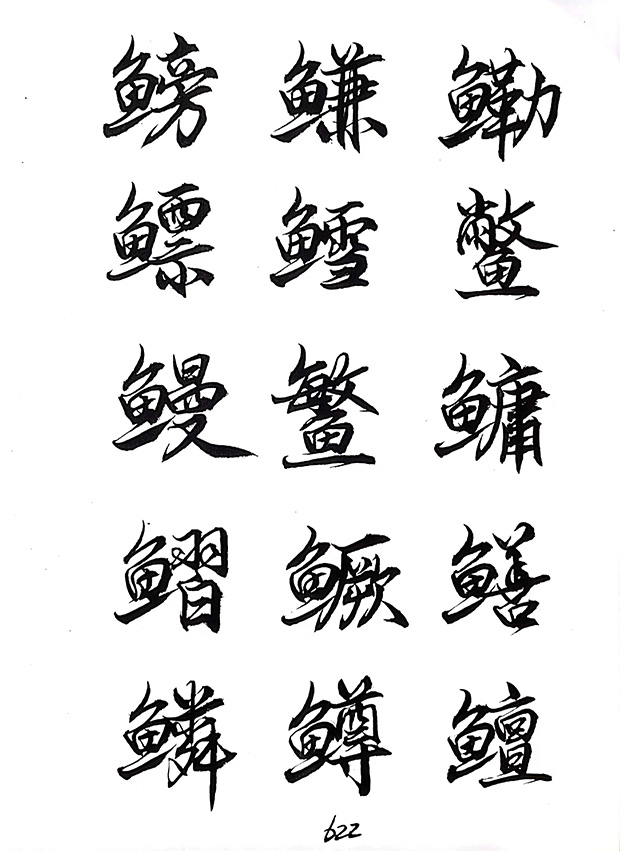 鳑 鳒 鳓
鳔 鳕 鳖
鳗 鳘 鳙
鳛 鳜 鳝
鳞 鳟 鳣
622